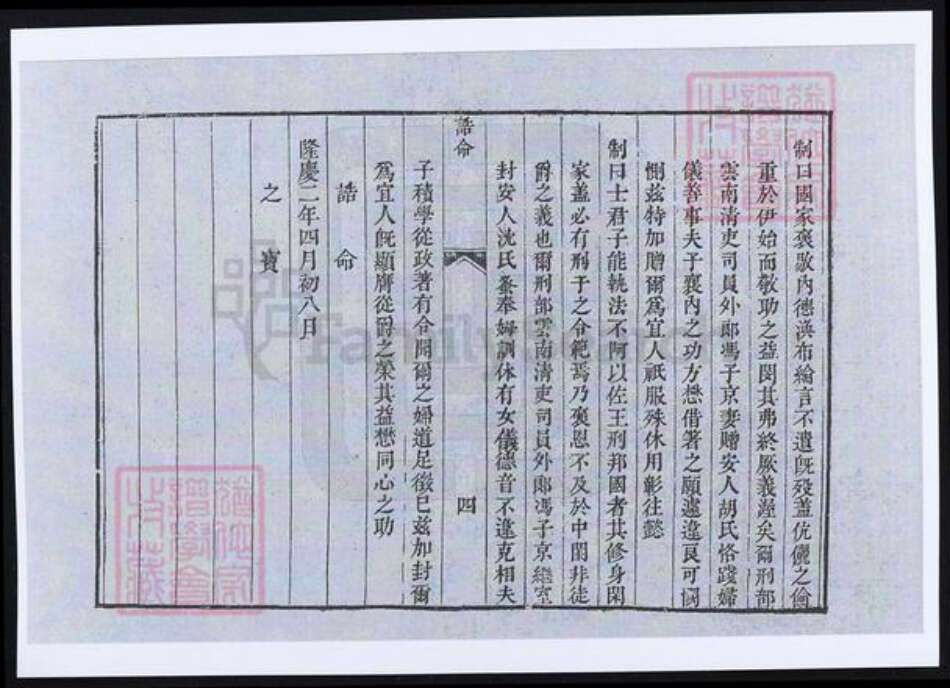 制曰國家褒敬內德渙布綸言不遺旣歿蓋伉儷之倫
重於伊始而敬助之益閔其弗終厥義渥矣爾刑部
雲南清吏司員外郎馮子京妻贈安人胡氏恪踐婦
儀善事夫子襄內之功方懋偕箸之願遽違良可憫
惻茲特加贈爾爲宜人祇服殊休用彰往懿
制曰士君子能執法不阿以佐王刑邦國者其修身閑
家蓋必有刑于之令範焉乃褒恩不及於中閨非徒
爵之義也爾刑部雲南清吏司員外郎馮子京繼室
封安人沈氏夤奉姆訓休有女儀德音不違克相夫
誥命
四
子積學從政著有令聞爾之婦道足徵已茲加封爾
爲宜人旣顯膺從爵之榮其益懋同心之助
誥命
隆慶二年四月初八日
之寶
FamilySearch